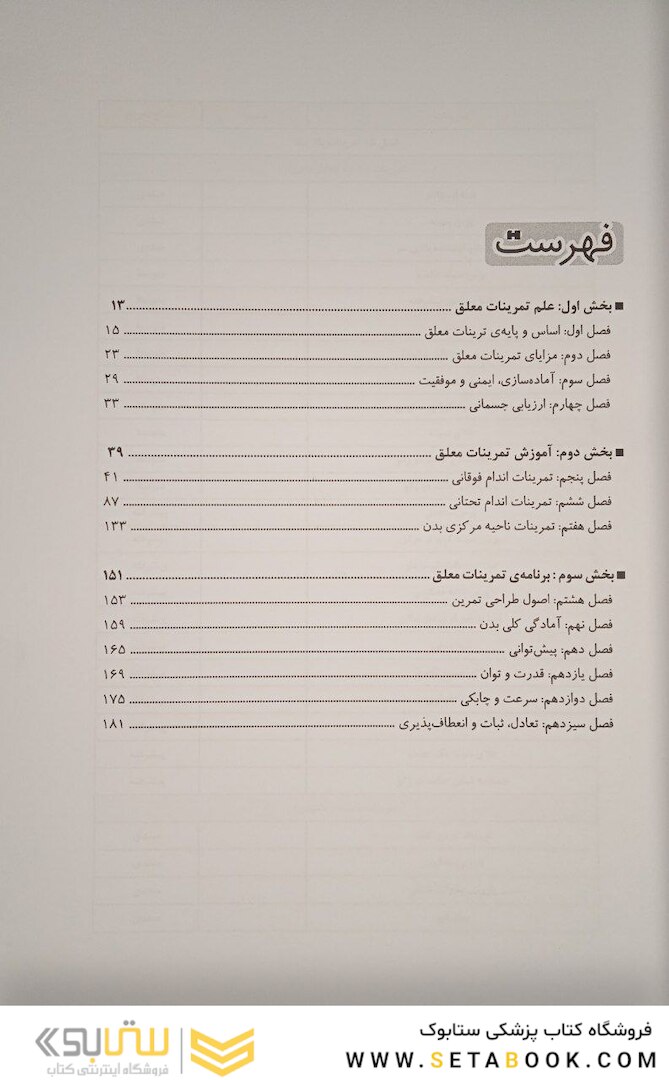 فهرست
■ بخش اول: علم تمرینات معلق ........ ۱۳
فصل اول: اساس و پایه‌ی ترینات معلق ........ ۱۵
فصل دوم: مزایای تمرینات معلق ........ ۲۳
فصل سوم: آماده‌سازی، ایمنی و موفقیت ........ ۲۹
فصل چهارم: ارزیابی جسمانی ........ ۳۳
■ بخش دوم: آموزش تمرینات معلق ........ ۳۹
فصل پنجم: تمرینات اندام فوقانی ........ ۴۱
فصل ششم: تمرینات اندام تحتانی ........ ۸۷
فصل هفتم: تمرینات ناحیه مرکزی بدن ........ ۱۳۳
■ بخش سوم : برنامه‌ی تمرینات معلق ........ ۱۵۱
فصل هشتم: اصول طراحی تمرین ........ ۱۵۳
فصل نهم: آمادگی کلی بدن ........ ۱۵۹
فصل دهم: پیش‌توانی ........ ۱۶۵
فصل یازدهم: قدرت و توان ........ ۱۶۹
فصل دوازدهم: سرعت و چابکی ........ ۱۷۵
فصل سیزدهم: تعادل، ثبات و انعطاف‌پذیری ........ ۱۸۱
فروشگاه کتاب پزشکی ستابوک
WWW.SETABOOK.COM
ستابوک
فروشگاه اینترنتی کتاب